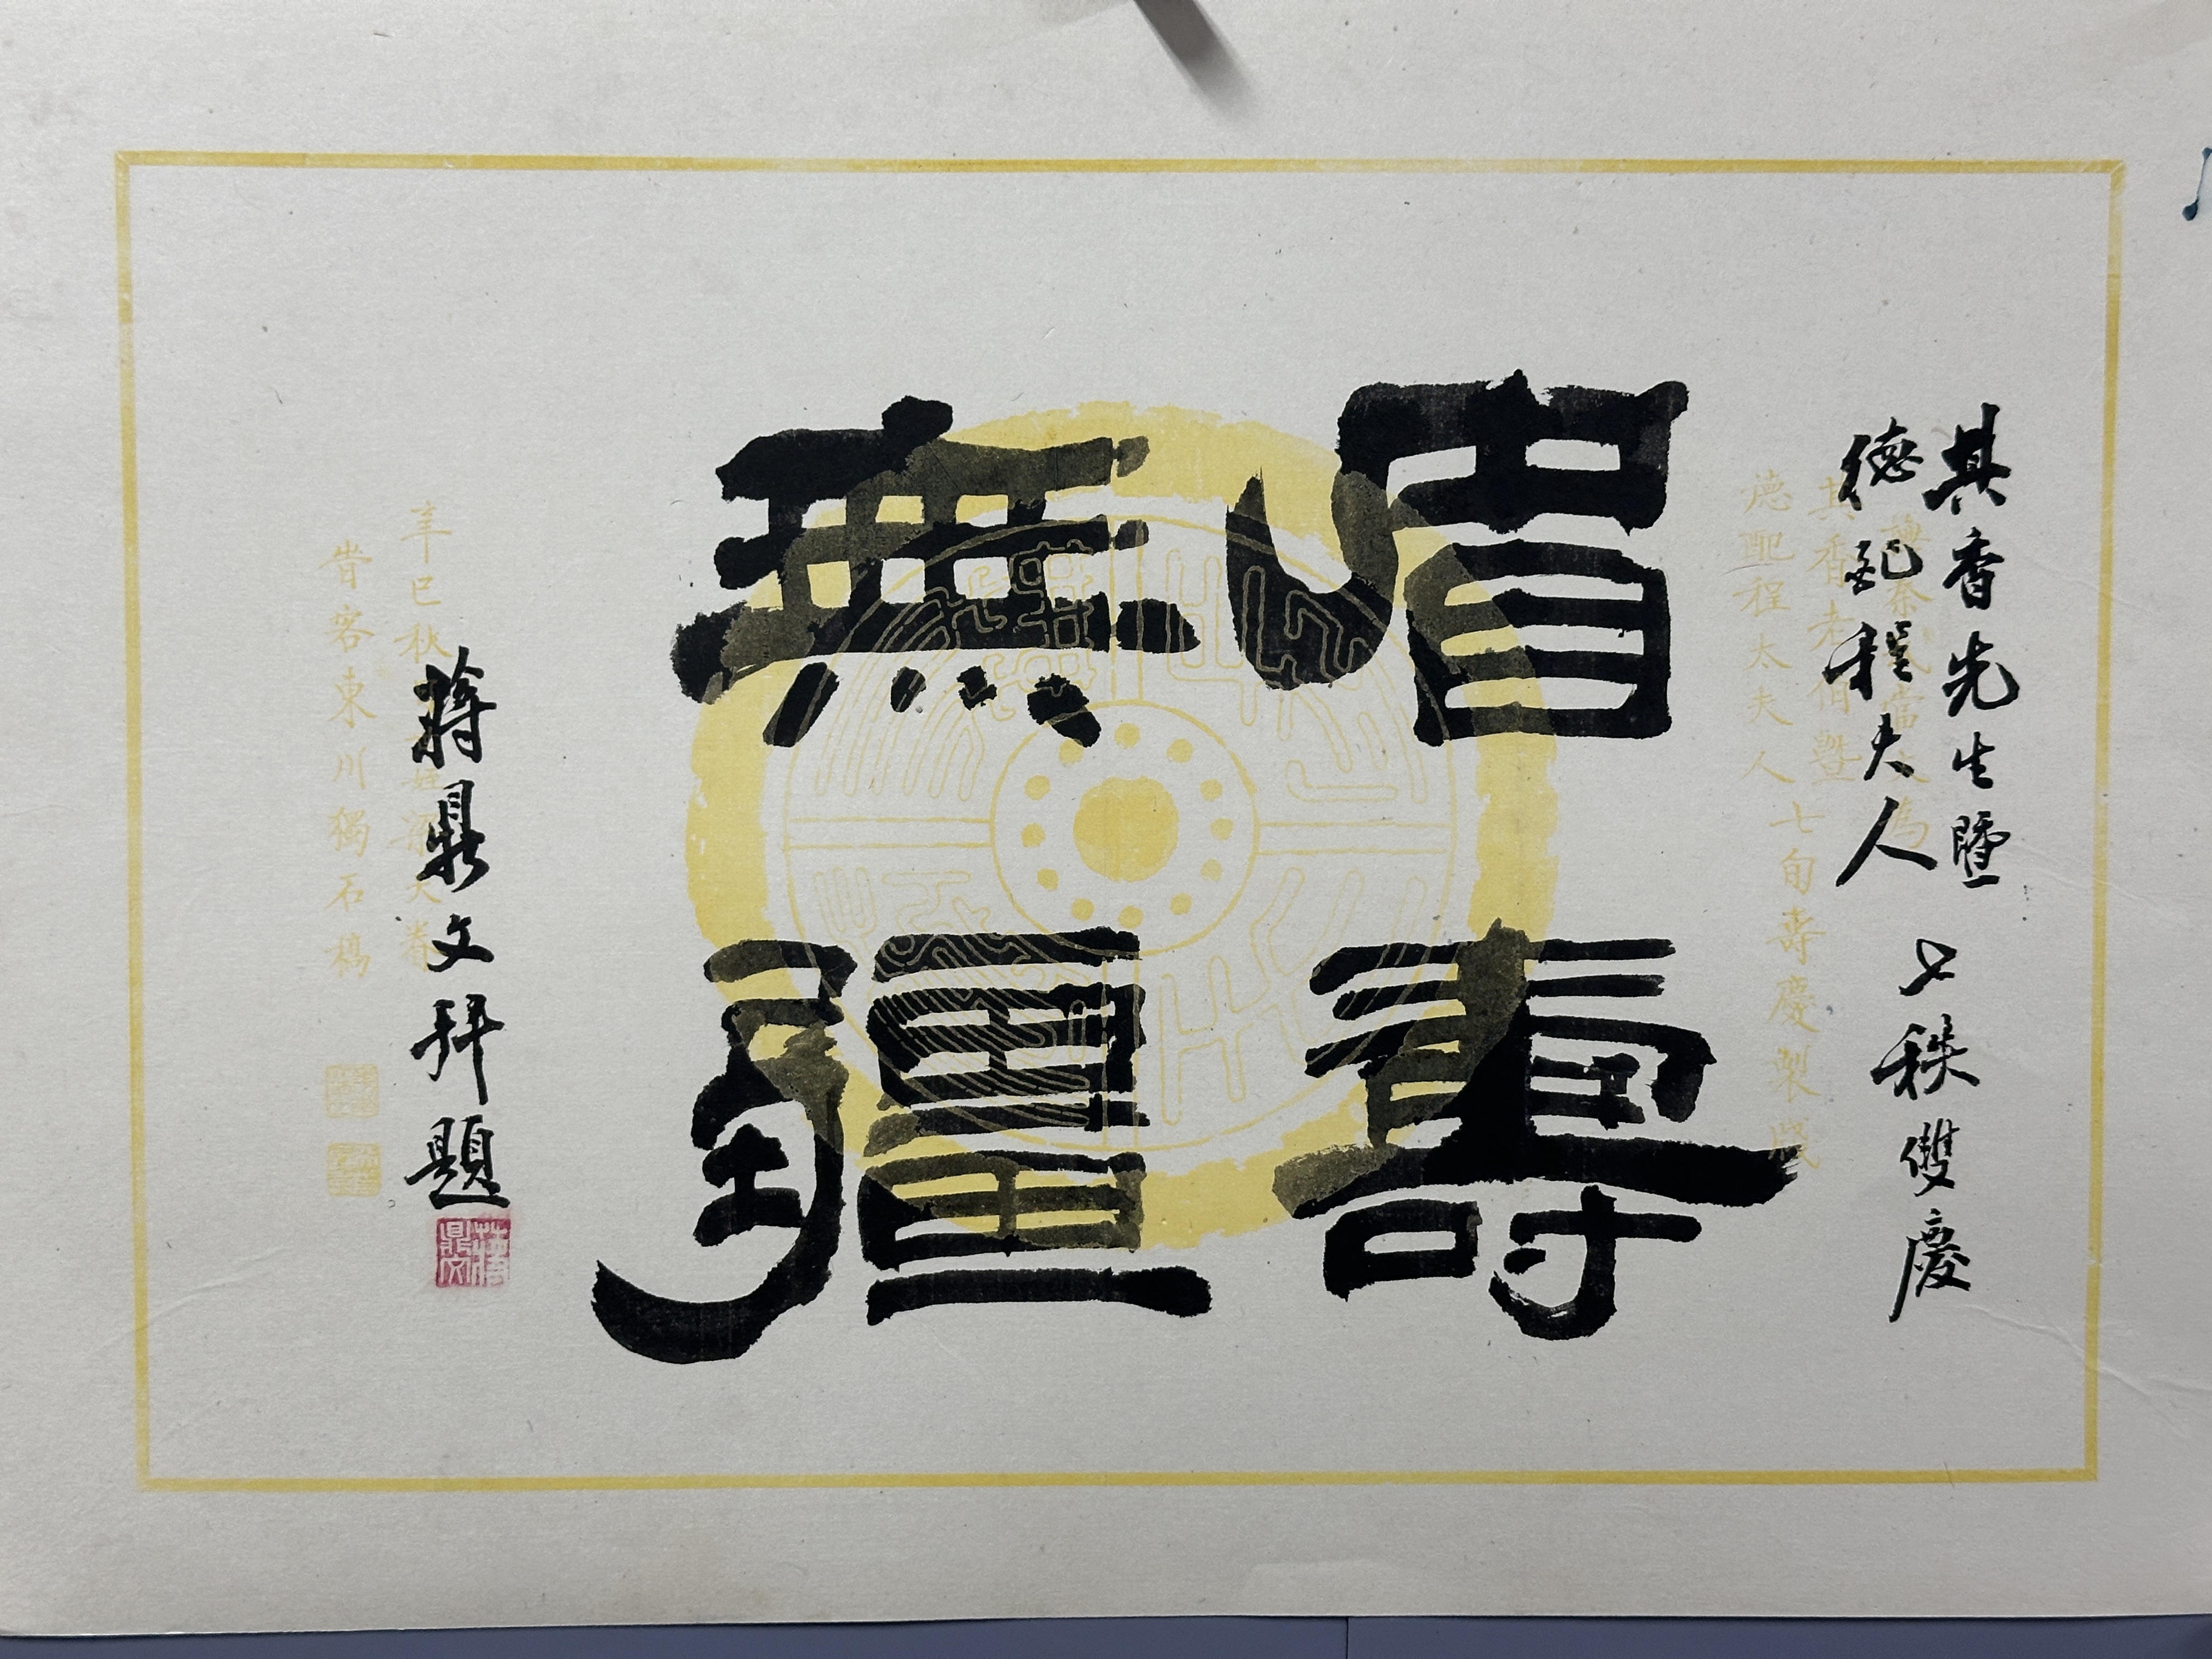 其香先生暨
德配程夫人
七秩雙慶
眉壽
無疆
蔣鼎文拜題
蔣鼎文
其香老伯暨
德配程太夫人七旬壽慶製
辛巳秋
時客東川獨石橋